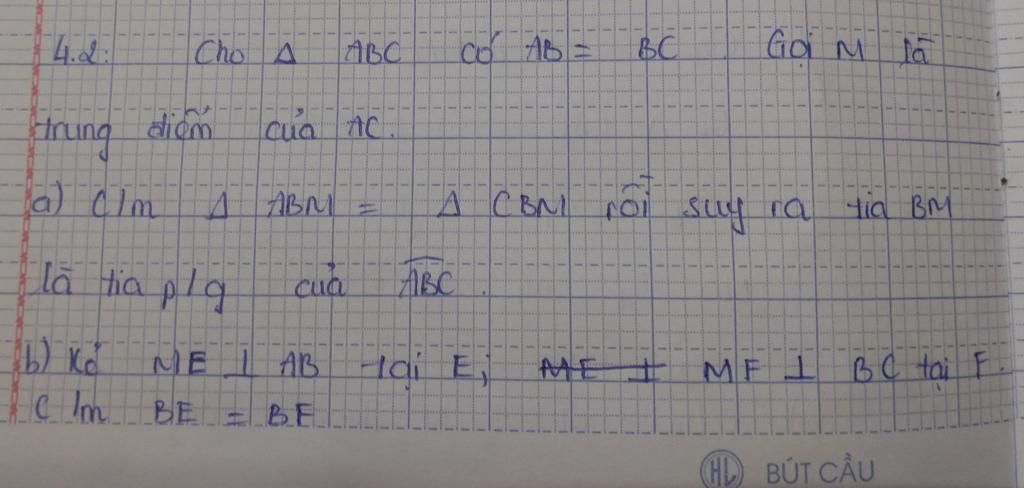 4.2: Cho Δ ABC có AB = BC Gọi M là
trung điểm của AC.
a) C/m Δ ABM = Δ CBM rồi suy ra tia BM
là tia p/g của ABC.
b) Kẻ ME ⊥ AB tại E; ME ⊥ MF ⊥ BC tại F.
C/m BE = BF
HL BÚT CẦU